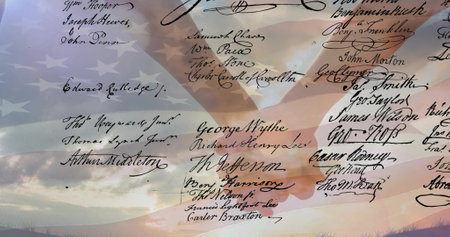 Wm Hooper
Joseph Hewes,
John Penn
Edward Rutledge /.
Thos Heyward Junr.
Thomas Lynch Junr.
Arthur Middleton
Samuel Chase
Wm Paca
Thos Stone
Charles Carroll of Carrollton
George Wythe
Richard Henry Lee
Th Jefferson
Benj Harrison
Thos Nelson jr.
Francis Lightfoot Lee
Carter Braxton
Benjamin Rush
Benj. Franklin
John Morton
Geo Clymer
Jas. Smith
Geo. Taylor
James Wilson
Geo. Ross
Caesar Rodney
Geo Read
Tho M:Kean